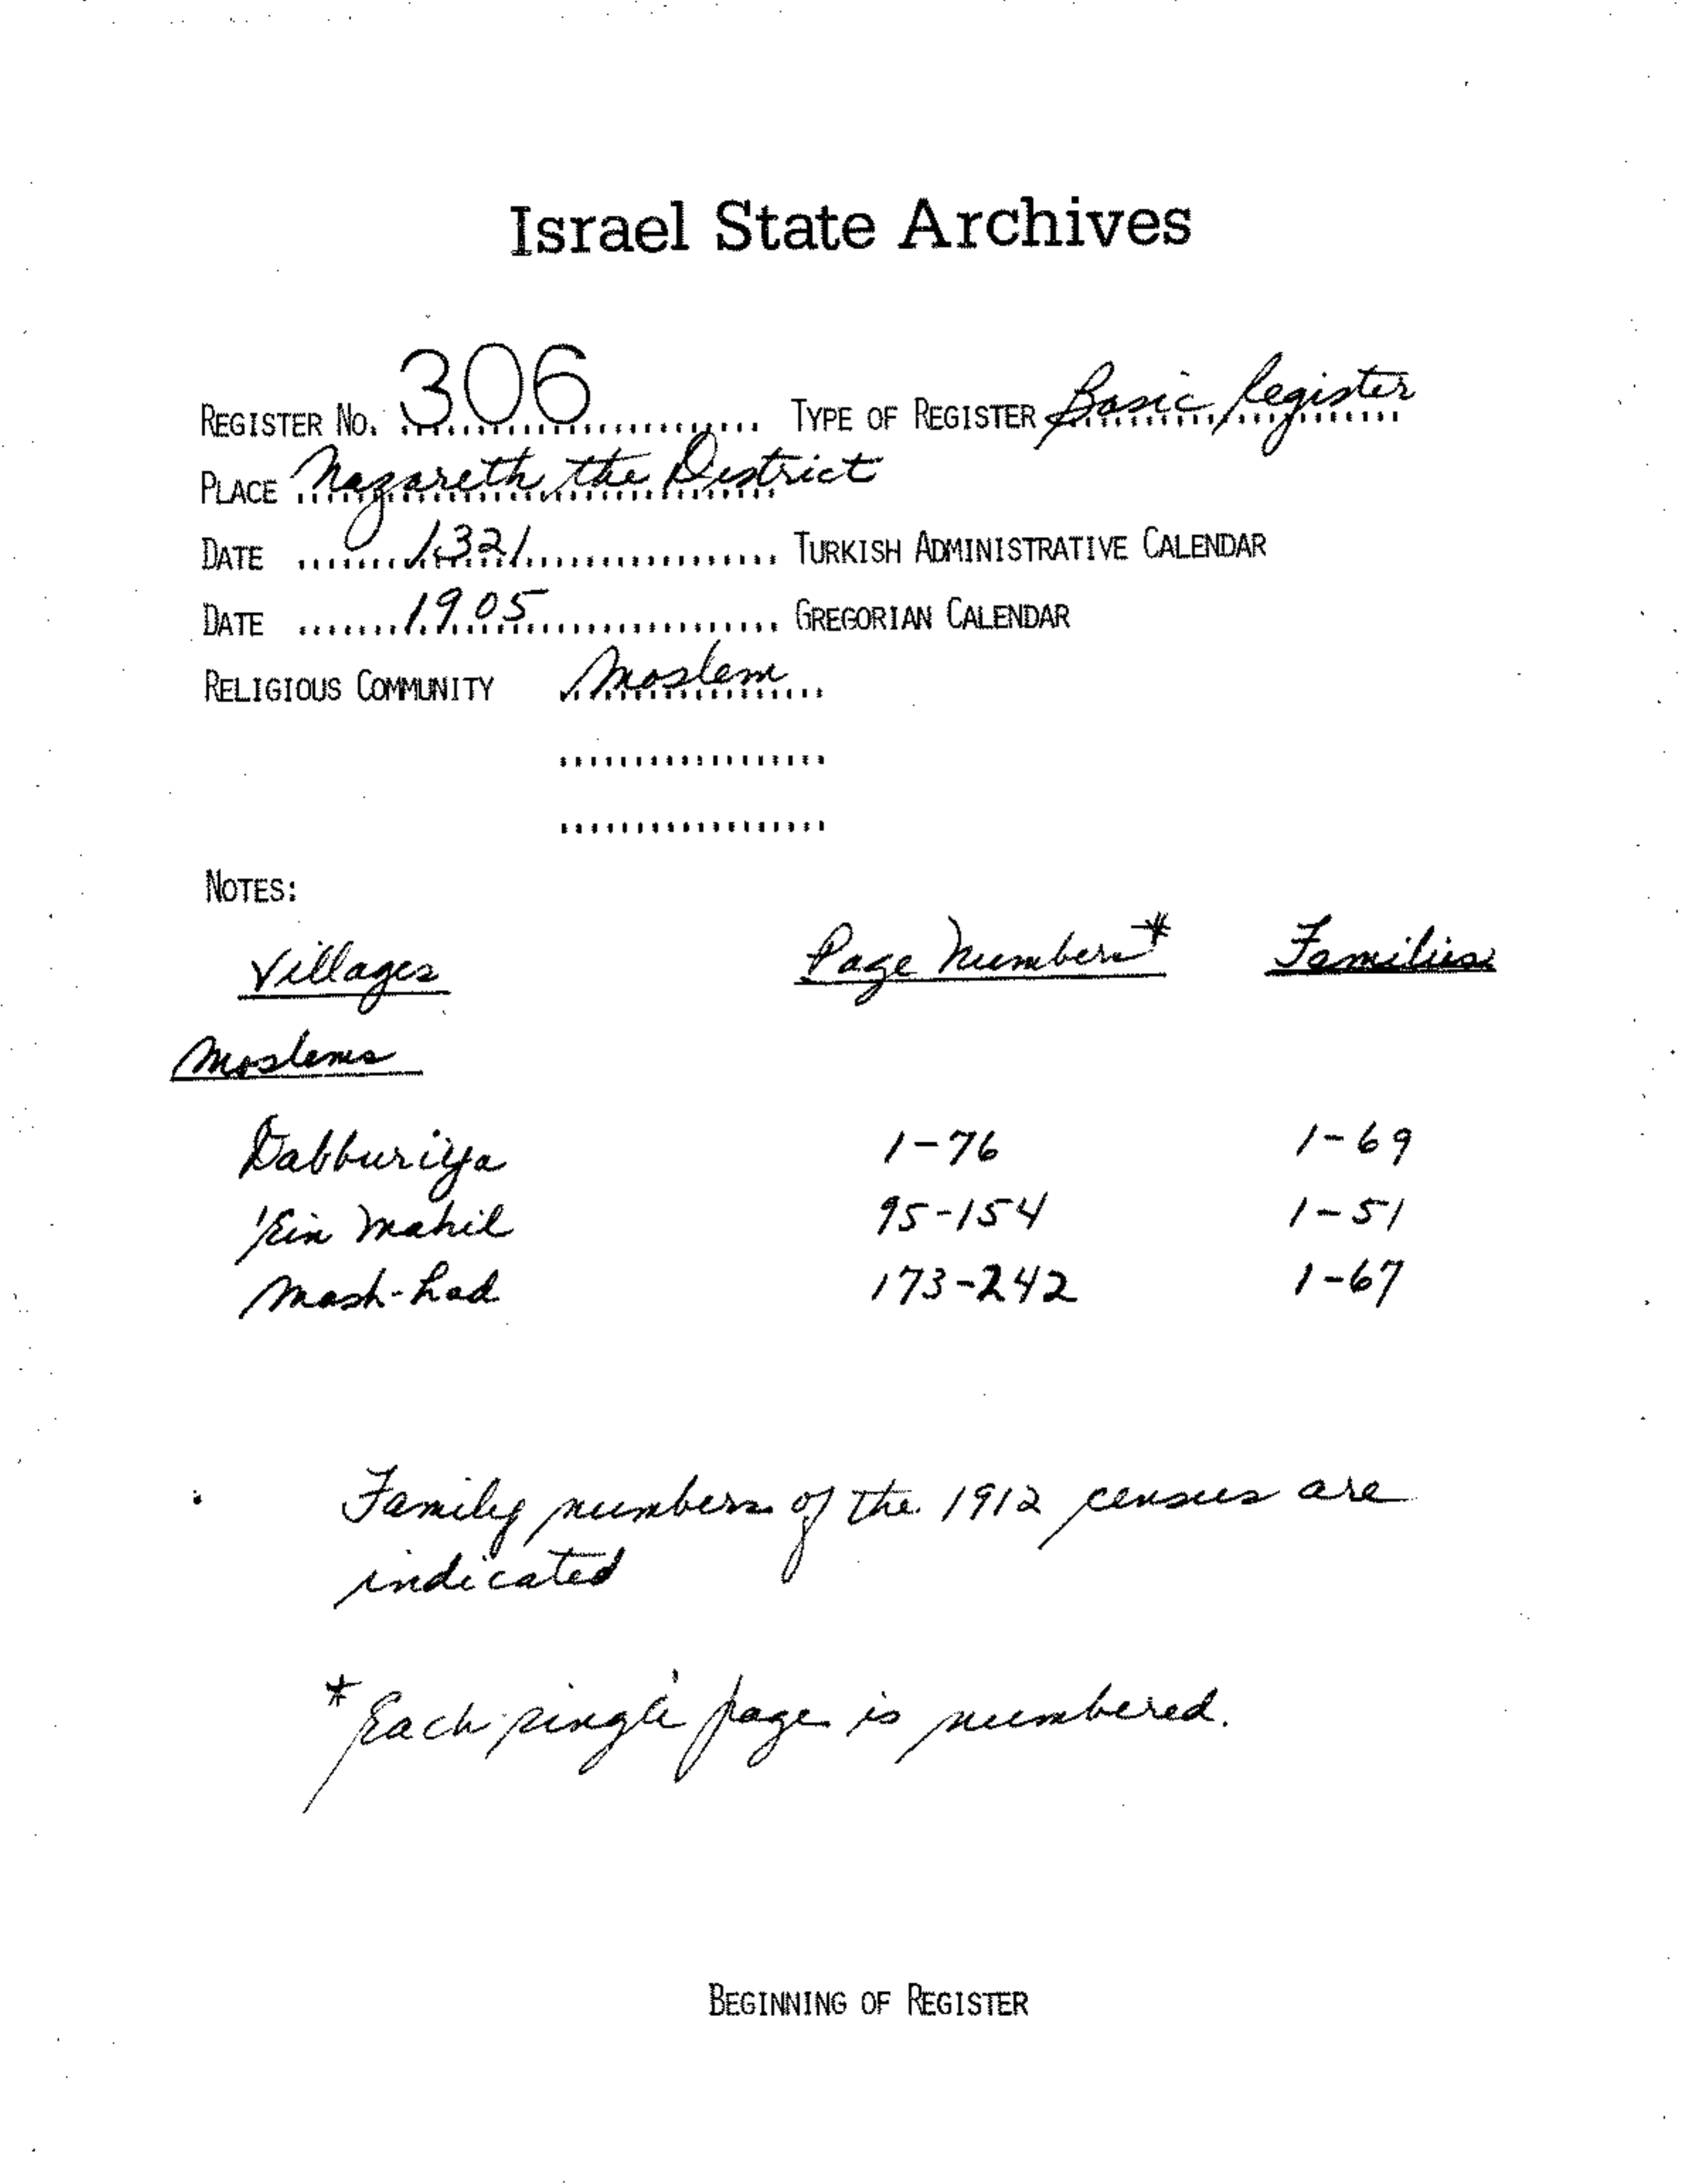 Israel State Archives
REGISTER NO. 306 TYPE OF REGISTER Basic Register
PLACE Nazareth the District
DATE 1321 TURKISH ADMINISTRATIVE CALENDAR
DATE 1905 GREGORIAN CALENDAR
RELIGIOUS COMMUNITY Moslem
NOTES:
Villages Page Numbers* Families
Moslems
Dabburiya 1-76 1-69
'Ein Mahil 95-154 1-51
Mash-had 173-242 1-67
Family numbers of the 1912 census are
indicated
* Each single page is numbered.
BEGINNING OF REGISTER